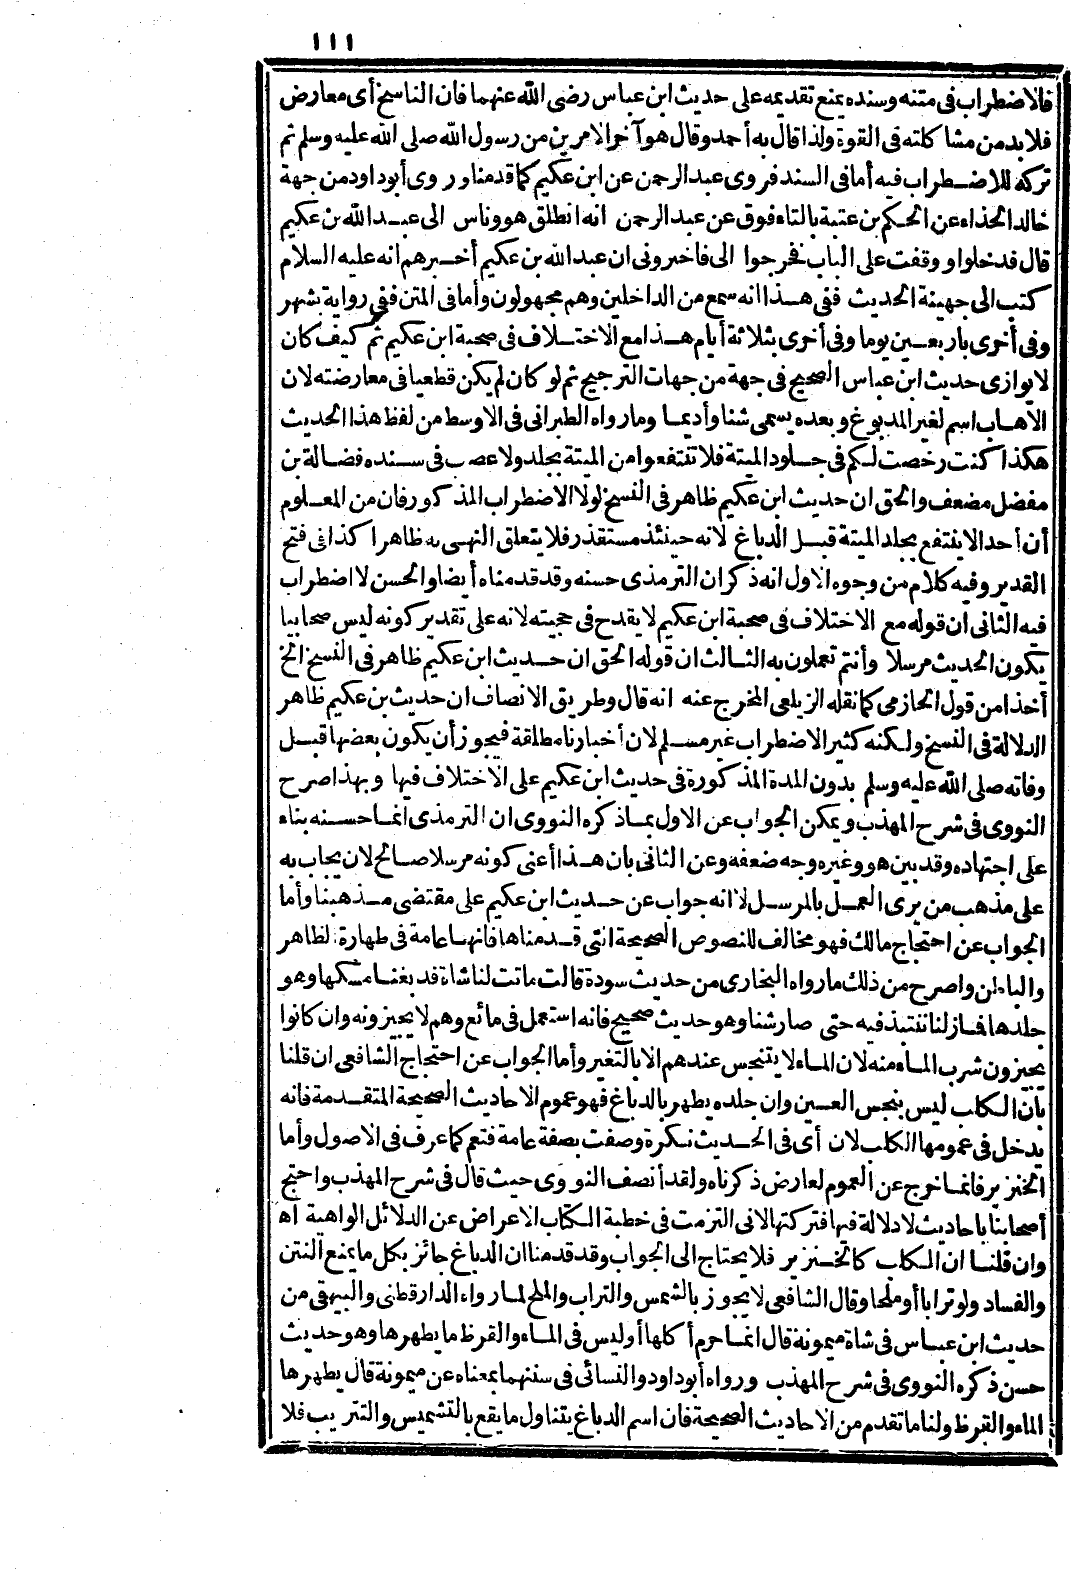 ١١١
فالاضطراب فى متنه وسنده يمنع تقديمه على حديث ابن عباس رضى الله عنهما فان الناسخ أى معارض
فلا بد من مشاكلته فى القوة ولذا قال به أحمد وقال هو آخر الامرين من رسول الله صلى الله عليه وسلم ثم
تركه للاضطراب فيه أما فى السند فروى عبد الرحمن عن ابن عكيم كما قدمنا وروى أبو داود من جهة
خالد الحذاء عن الحكم بن عتبة بالتاء فوق عن عبد الرحمن انه انطلق هو وناس الى عبد الله بن عكيم
قال فدخلوا ووقفت على الباب فخرجوا الى فاخبرونى ان عبد الله بن عكيم أخبرهم انه عليه السلام
كتب الى جهينة الحديث ففى هذا انه سمع من الداخلين وهم مجهولون وأما فى المتن ففى رواية بشهر
وفى أخرى بأربعين يوما وفى أخرى بثلاثة أيام هذا مع الاختلاف فى صحبة ابن عكيم ثم كيف كان
لا يوازى حديث ابن عباس الصحيح فى جهة من جهات الترجيح ثم لو كان لم يكن قطعيا فى معارضته لان
الاهاب اسم لغير المدبوغ وبعده يسمى شنا وأديما وما رواه الطبرانى فى الاوسط من لفظ هذا الحديث
هكذا كنت رخصت لكم فى جلود الميتة فلا تنتفعوا من الميتة بجلد ولا عصب فى سنده فضالة بن
مفضل مضعف والحق ان حديث ابن عكيم ظاهر فى النسخ لولا الاضطراب المذكور فان من المعلوم
أن أحدا لا ينتفع بجلد الميتة قبل الدباغ لانه حينئذ مستقذر فلا يتعلق النهى به ظاهرا كذا فى فتح
القدير وفيه كلام من وجوه الاول انه ذكر ان الترمذى حسنه وقد قدمناه أيضا والحسن لا اضطراب
فيه الثانى ان قوله مع الاختلاف فى صحبة ابن عكيم لا يقدح فى حجيته لانه على تقدير كونه ليس صحابيا
يكون الحديث مرسلا وأنتم تعملون به الثالث ان قوله الحق ان حديث ابن عكيم ظاهر فى النسخ الخ
أخذا من قول الحازمى كما نقله الزيلعى المخرج عنه انه قال وطريق الانصاف ان حديث بن عكيم ظاهر
الدلالة فى النسخ ولكنه كثير الاضطراب غير مسلم لان أخبارنا مطلقة فيجوز أن يكون بعضها قبل
وفاته صلى الله عليه وسلم بدون المدة المذكورة فى حديث ابن عكيم على الاختلاف فيها وبهذا صرح
النووى فى شرح المهذب ويمكن الجواب عن الاول بما ذكره النووى ان الترمذى انما حسنه بناء
على اجتهاده وقد بين هو وغيره وجه ضعفه وعن الثانى بان هذا أعنى كونه مرسلا صالح لان يجاب به
على مذهب من يرى العمل بالمرسل لا انه جواب عن حديث ابن عكيم على مقتضى مذهبنا وأما
الجواب عن احتجاج مالك فهو مخالف للنصوص الصحيحة التى قدمناها فانها عامة فى طهارة الظاهر
والباطن واصرح من ذلك ما رواه البخارى من حديث سودة قالت ماتت لنا شاة فدبغنا مسكها وهو
جلدها فما زلنا ننتبذ فيه حتى صار شنا وهو حديث صحيح فانه استعمل فى مائع وهم لا يجيزونه وان كانوا
يجيزون شرب الماء منه لان الماء لا يتنجس عندهم الا بالتغير وأما الجواب عن احتجاج الشافعى ان قلنا
بأن الكلب ليس بنجس العين وان جلده يطهر بالدباغ فهو عموم الاحاديث الصحيحة المتقدمة فانه
يدخل فى عمومها الكلب لان أى فى الحديث نكرة وصفت بصفة عامة فتعم كما عرف فى الاصول وأما
الخنزير فانما خرج عن العموم لعارض ذكرناه ولقد أنصف النووى حيث قال فى شرح المهذب واحتج
أصحابنا باحاديث لا دلالة فيها فتركتها لانى التزمت فى خطبة الكتاب الاعراض عن الدلائل الواهية اه
وان قلنا ان الكلب كالخنزير فلا يحتاج الى الجواب وقد قدمنا ان الدباغ جائز بكل ما يمنع النتن
والفساد ولو ترابا أو ملحا وقال الشافعى لا يجوز بالشمس والتراب والملح لما رواه الدارقطنى والبيهقى من
حديث ابن عباس فى شاة ميمونة قال انما حرم أكلها أوليس فى الماء والقرظ ما يطهرها وهو حديث
حسن ذكره النووى فى شرح المهذب ورواه أبو داود والنسائى فى سننهما بمعناه عن ميمونة قال يطهرها
الماء والقرظ ولنا ما تقدم من الاحاديث الصحيحة فان اسم الدباغ يتناول ما يقع بالتشميس والتتريب فلا